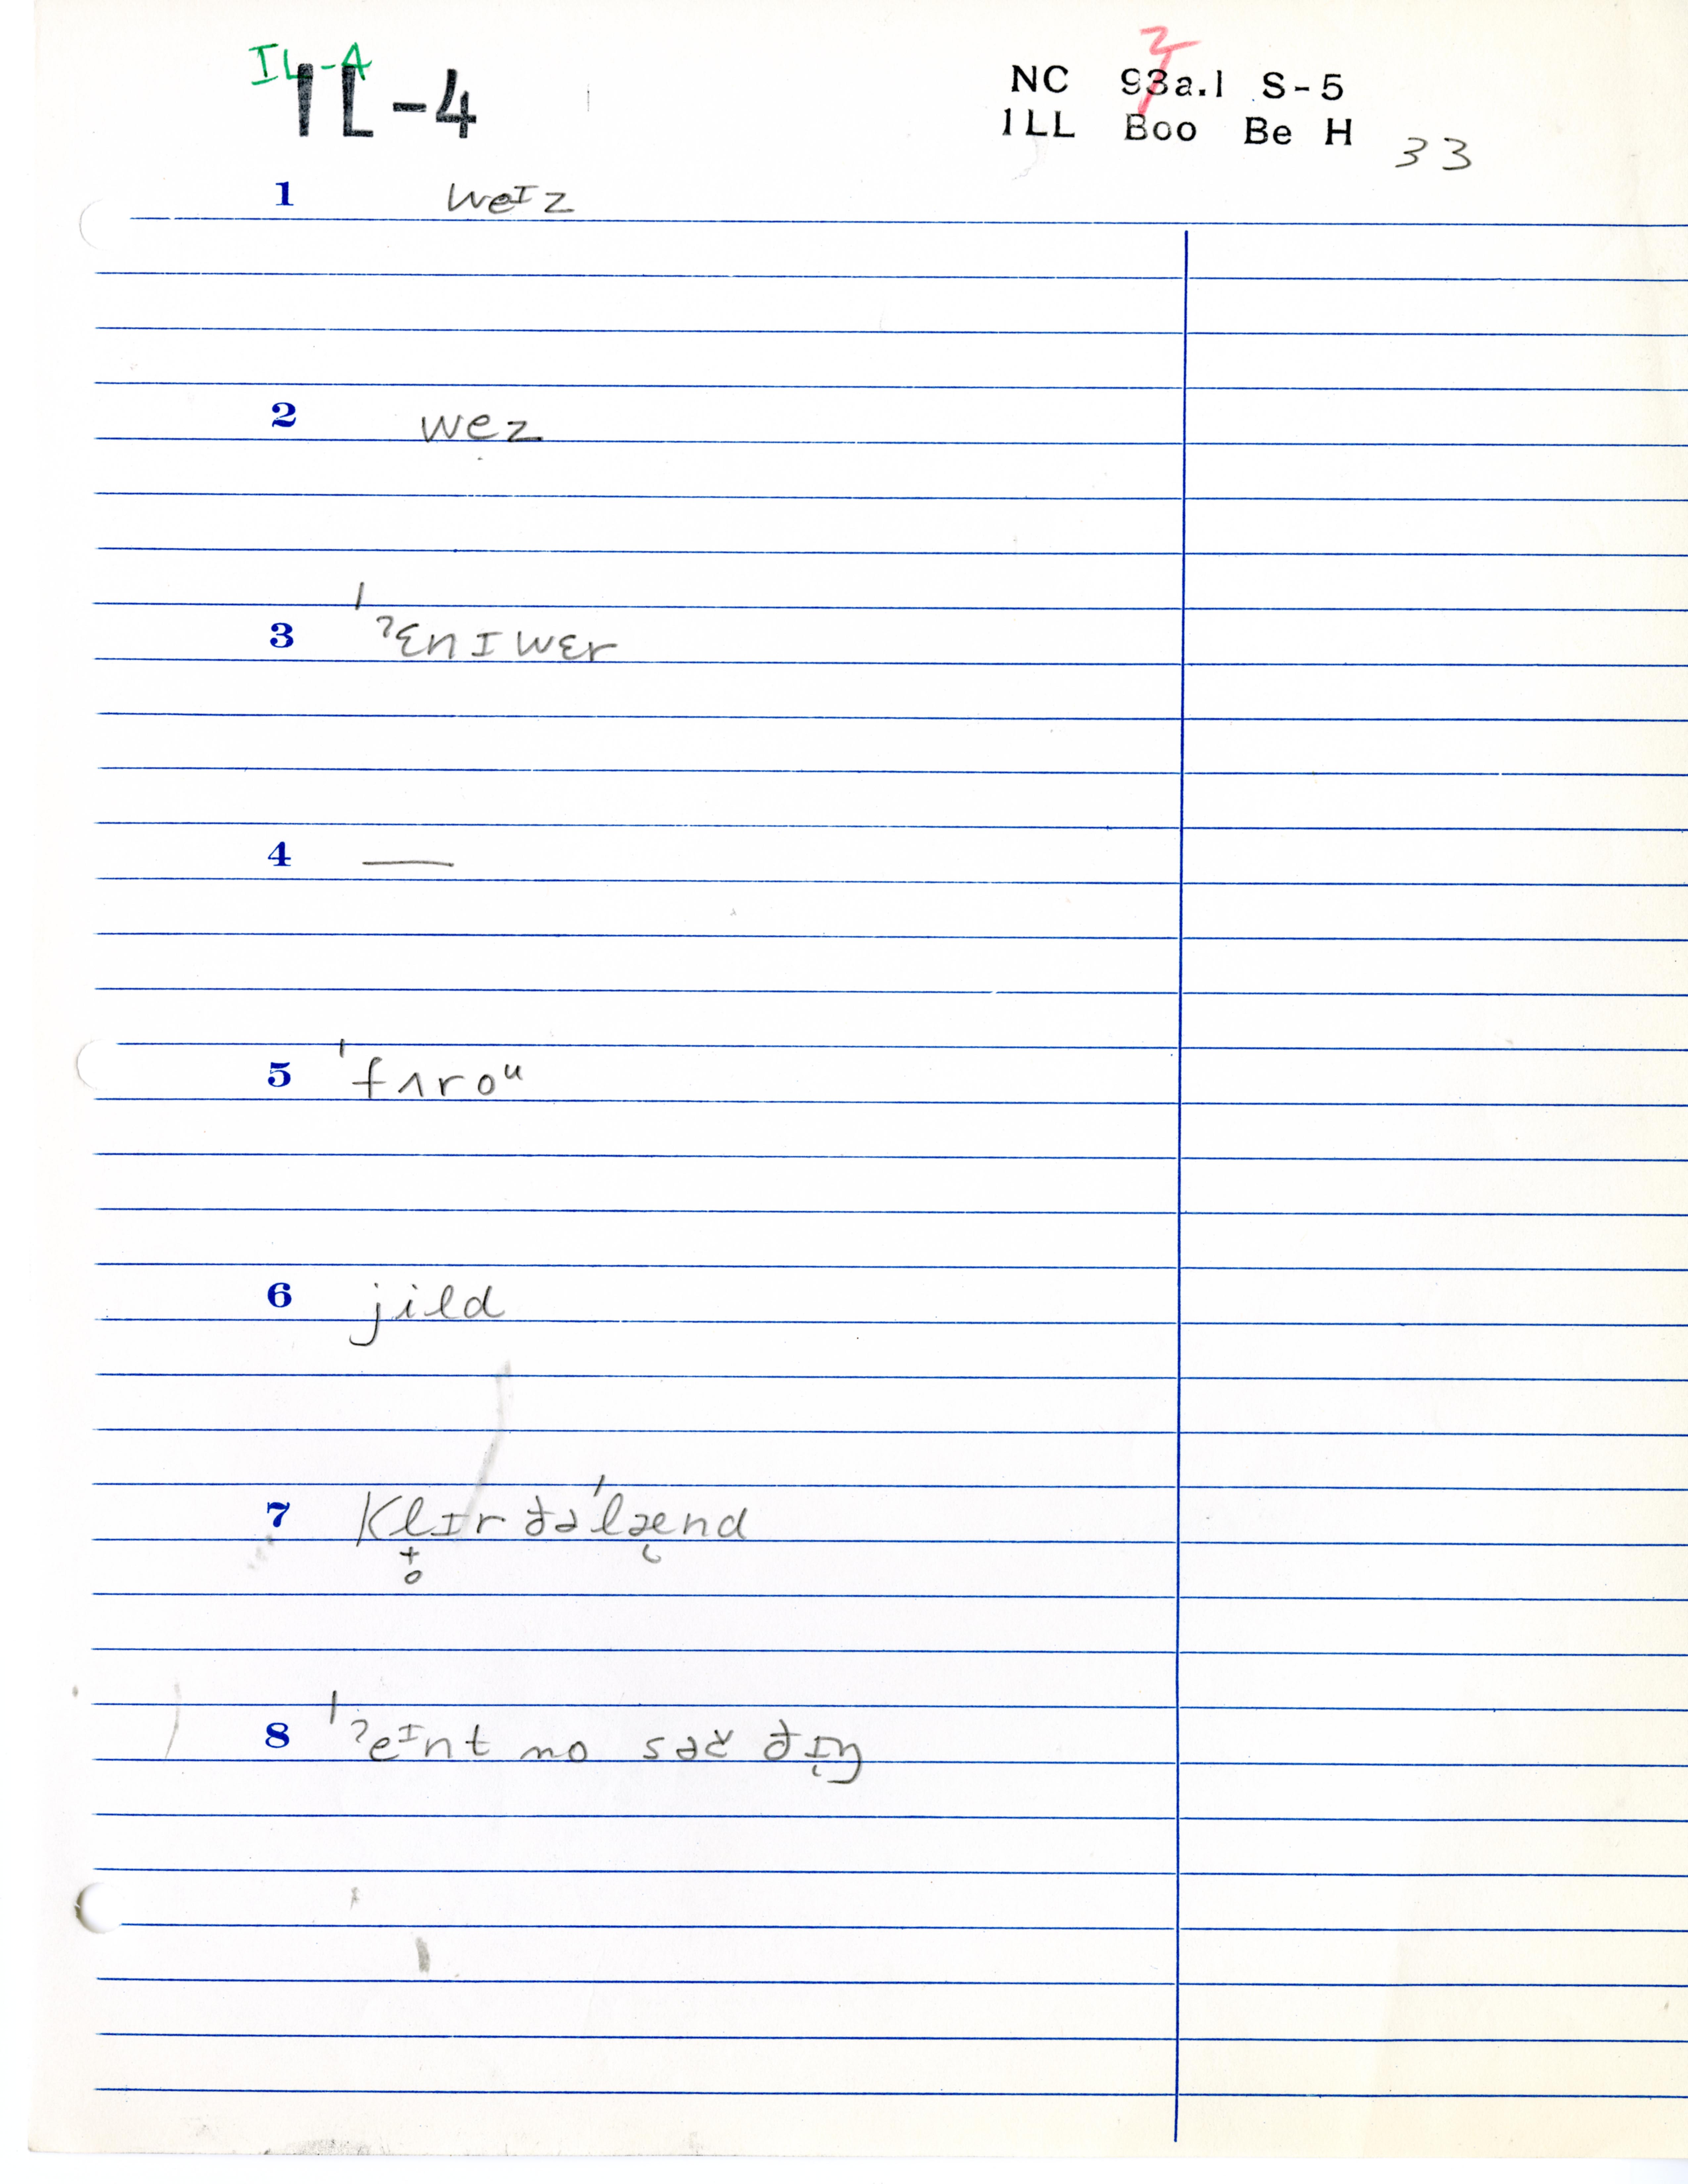 IL-A
IL-4
NC 93a.1 S-5
ILL Boo Be H 33
1 weɪz
2 wez
3 ˈʔɛnɪwɛr
4 —
5 ˈfʌroᵘ
6 jild
7 klɪr ðəˈlænd
8 ˈʔeɪnt no